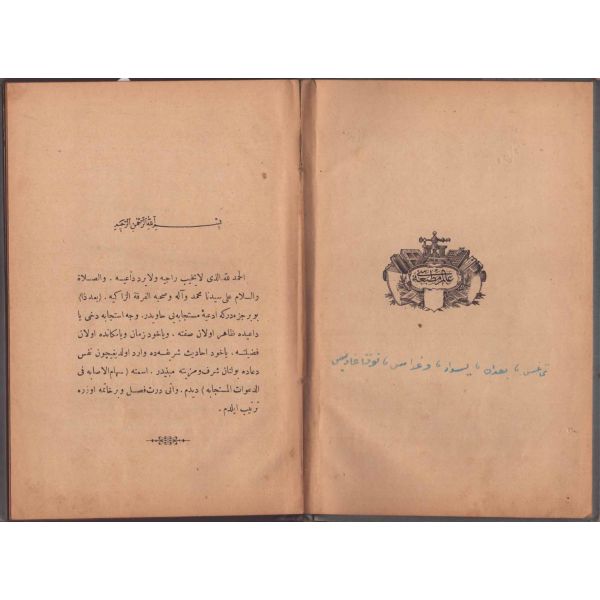 عالم مطبعه سى
بسم الله الرحمن الرحيم
الحمد لله الذى لايخيب راجيه ولايرد داعيه . والصلاة
والسلام على سيدنا محمد وآله وصحبه الفرقة الزاكيه . (بعدذا)
بو برجزءدركه ادعيهٔ مستجابه‌يى حاويدر . وجه استجابه دخى يا
داعيده ظاهر اولان صفته . وياخود زمان ويا مكانده اولان
فضيلته . ياخود احاديث شريفه‌ده وارد اولديغيچون نفس
دعاده اولنان شرف ومزيته مبنيدر . اسمنه (سهام الاصابه فى
الدعوات المستجابه) ديدم . وانى درت فصل و برخاتمه اوزره
ترتيب ايلدم .